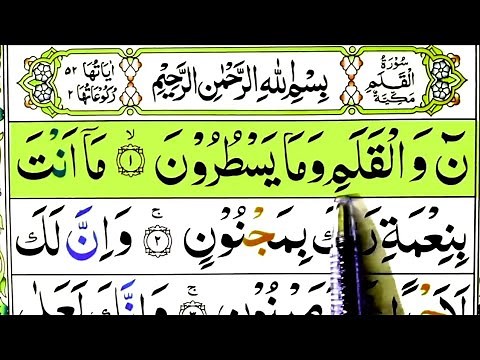 سُوْرَةُ الْقَلَمِ مَكِّيَّةٌ
بِسْمِ اللّٰهِ الرَّحْمٰنِ الرَّحِيْمِ
اٰيَاتُهَا ٥٢ رُكُوْعَاتُهَا ٢
نٓ وَالْقَلَمِ وَمَا يَسْطُرُوْنَ ۙ﴿١﴾ مَاۤ اَنْتَ
بِنِعْمَةِ بِمَجْنُوْنٍ ۚ﴿٢﴾ وَاِنَّ لَكَ
وَاِنَّكَ لَعَلٰى